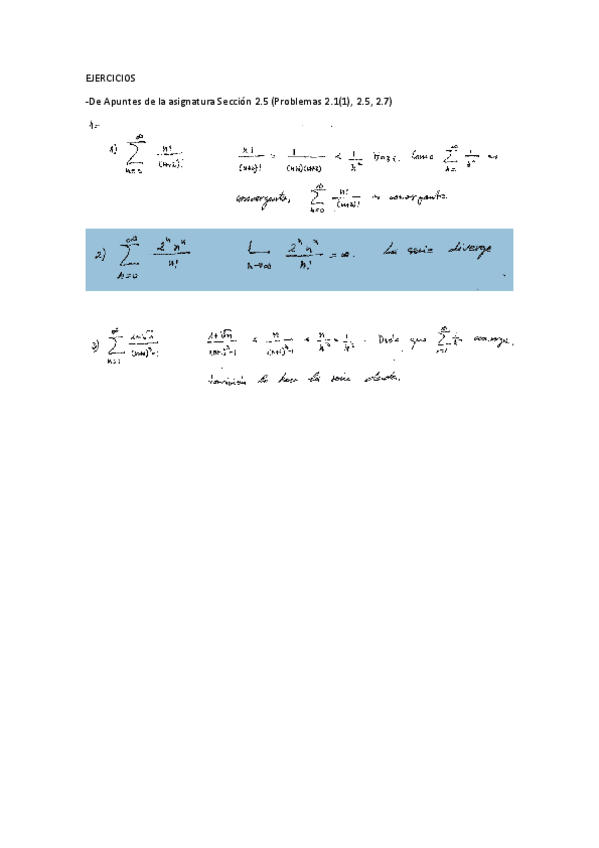 EJERCICIOS
-De Apuntes de la asignatura Sección 2.5 (Problemas 2.1(1), 2.5, 2.7)
1) ∑_{n=0}^{∞} n!/(n+2)!   n!/(n+2)! = 1/((n+1)(n+2)) < 1/n²   . Como ∑^{∞} 1/n² es
convergente, ∑_{n=0}^{∞} n!/(n+2)! es convergente.
2) ∑_{n=0}^{∞} 2ⁿnⁿ/n!   L_{n→∞} 2ⁿnⁿ/n! = ∞. La serie diverge
3) ∑_{n=1}^{∞}   . Dado que ∑_{n=1}^{∞} converge,
también lo hace la serie dada.